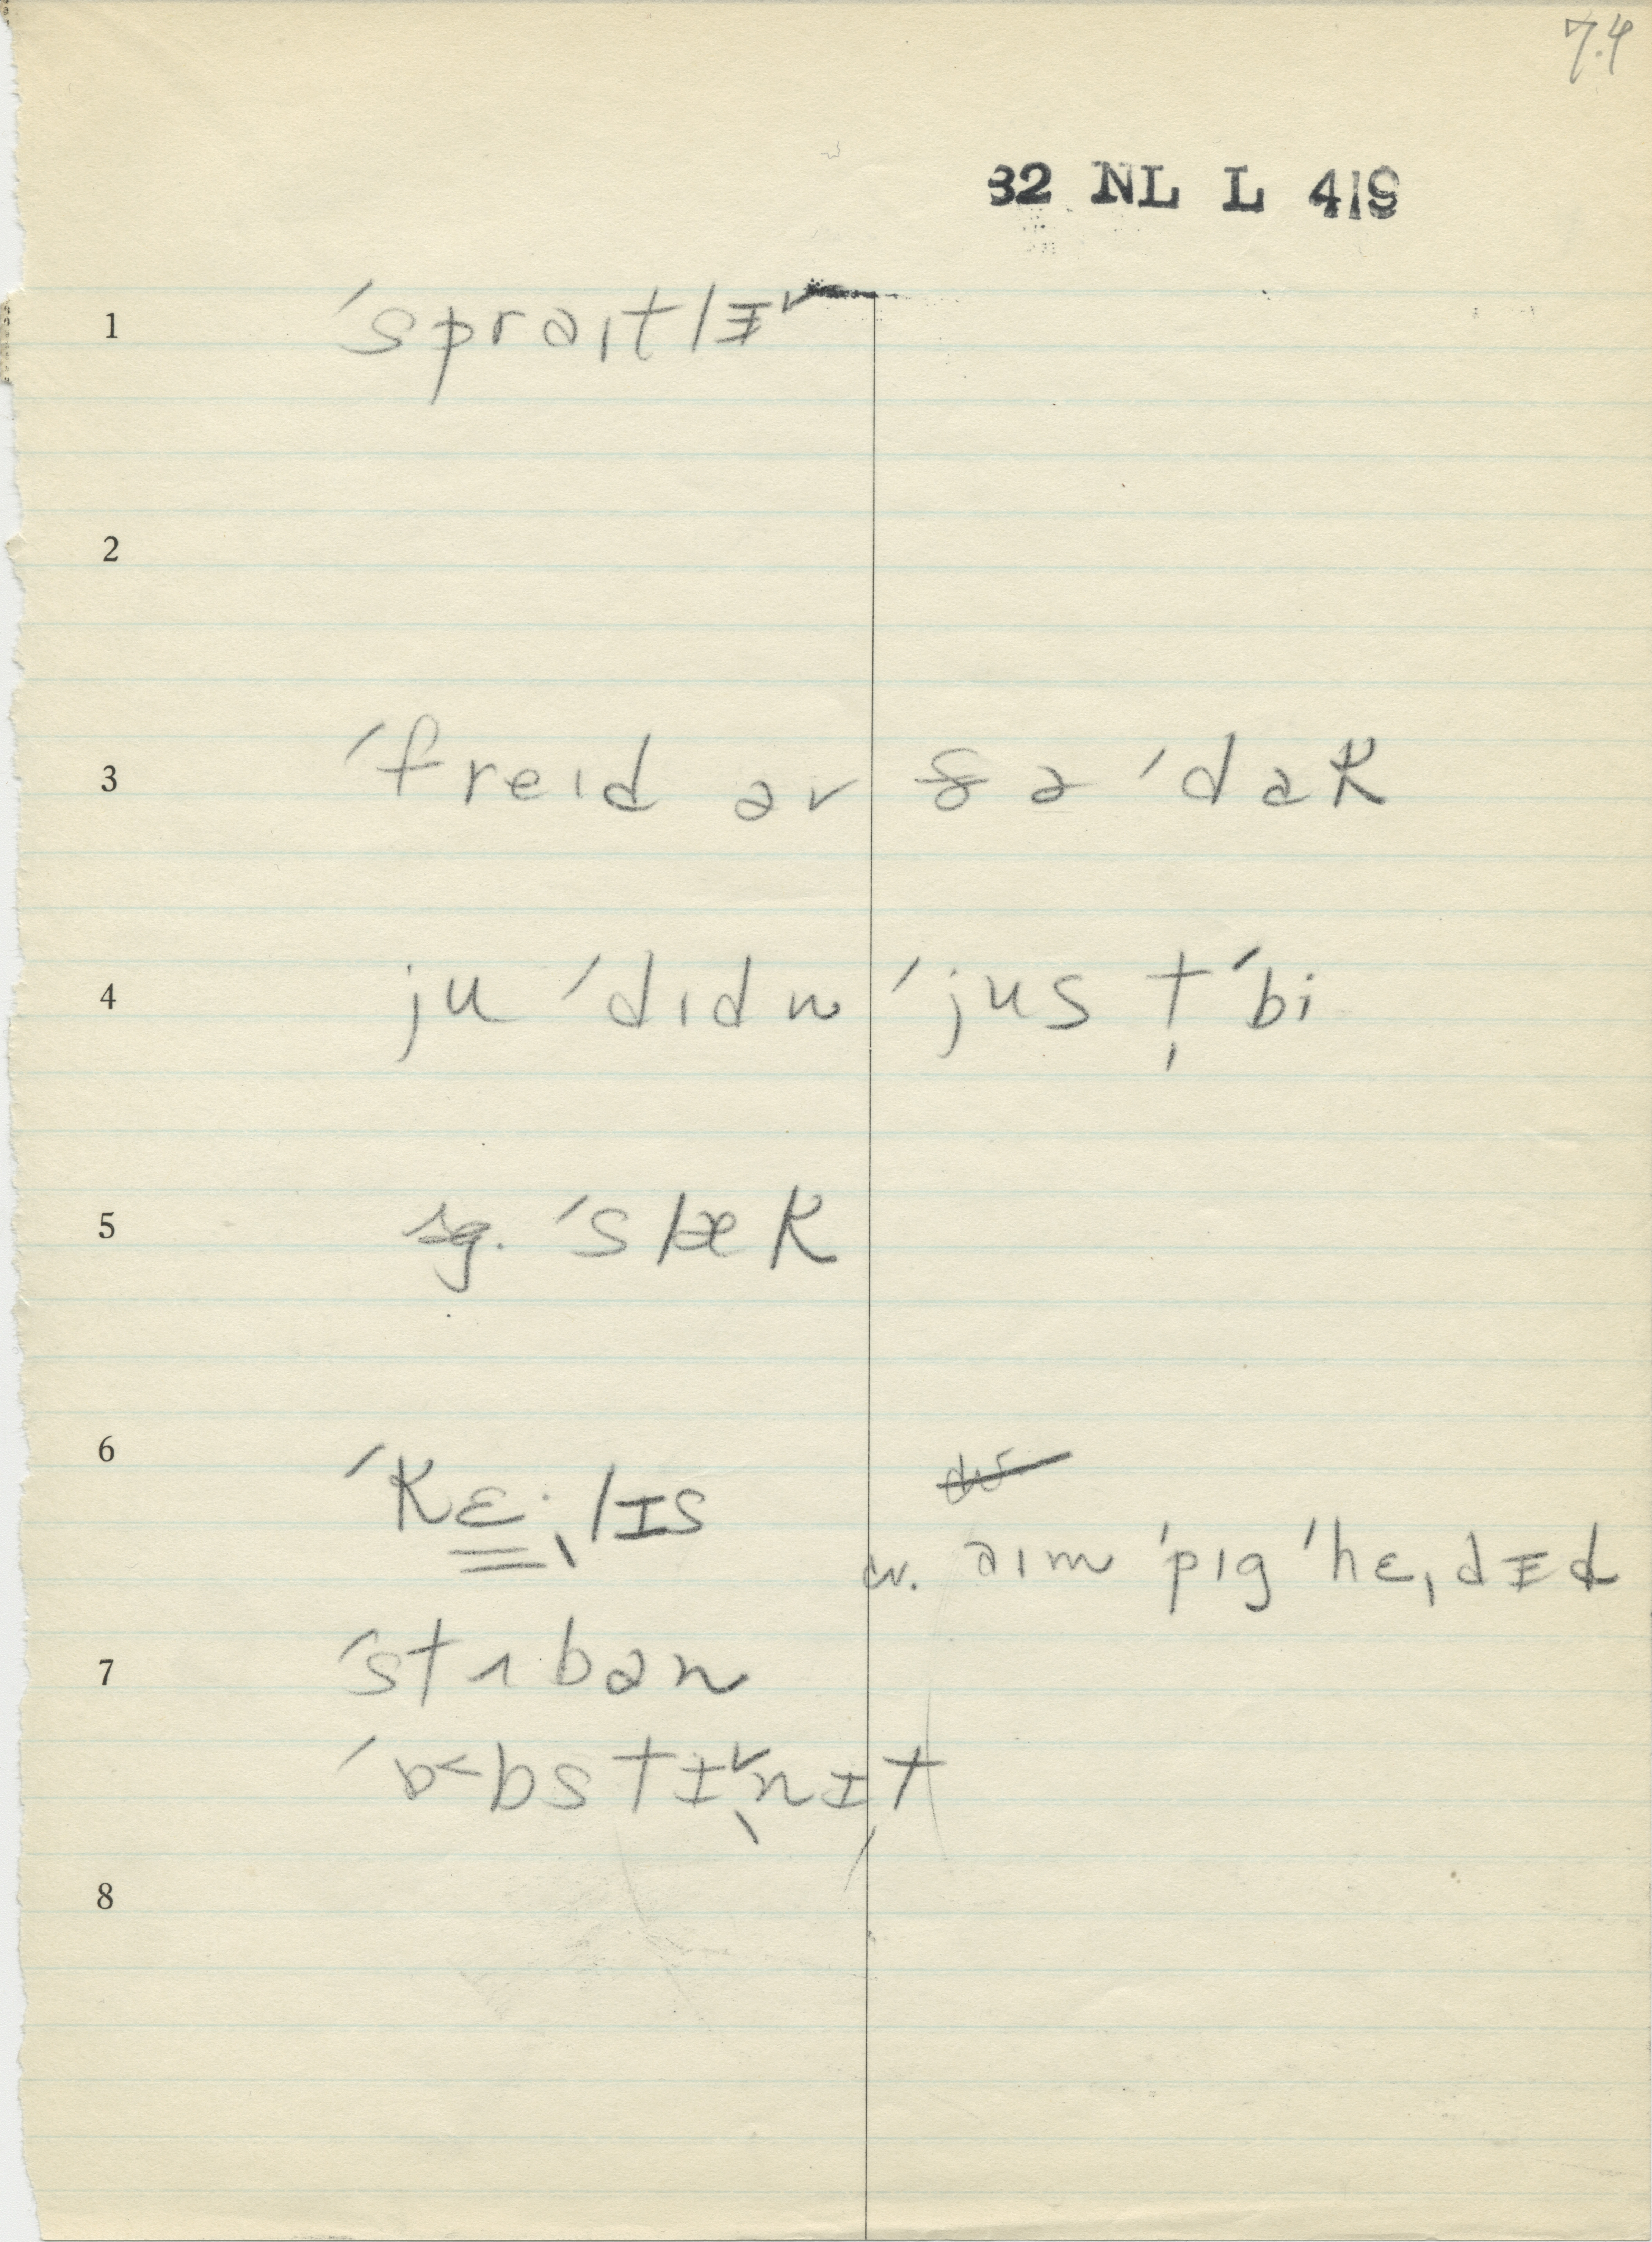 74
32 NL L 419
1 ˈspraɪtlɪ˅
2
3 ˈfreɪd əv ðə ˈdɑk
4 ju ˈdɪdn ˈjus t̩ ˈbi
5 sg. ˈslæk
6 ˈkɛ·lɪs
cv. aɪm ˈpɪg ˈhɛˌdɨd
7 ˈstʌbən
ˈɒ˂bstɪ˅nɪt
8